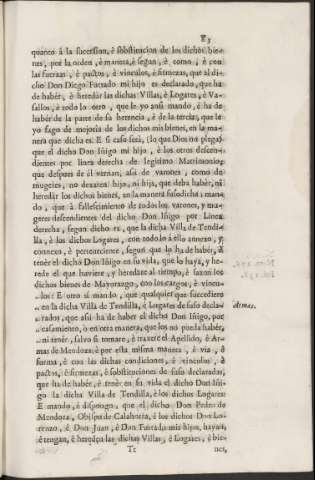 quanto á la sucession, é sobstitucion de los dichos bie-
nes, por la orden, é manera, é segun, é como, é con
las fuerzas, é pactos, é vinculos, é firmezas, que al di-
cho Don Diego Furtado mi hijo es declarado, que ha
de habér, é heredár las dichas Villas, é Logares, é Va-
sallos, é todo lo otro, que le yo ansi mando, é ha de
habér de la parte de su herencia, é de la tercia, que le
yo fago de mejoría de los dichos mis bienes, en la ma-
nera que dicha es. E si caso será, (lo que Dios no plega)
que el dicho Don Iñigo mi hijo, é los otros descen-
dientes por linea derecha de legitimo Matrimonio,
que despues de él vernan, asi de varones, como de
mugeres, no dexaren hijo, ni hija, que deba habér, ni
heredár los dichos bienes, en la manera susodicha: man-
do, que á fallescimiento de todos los varones, y mu-
geres descendientes del dicho Don Iñigo por Linea
derecha, segun dicho es, que la dicha Villa de Tendi-
lla, é los dichos Logares, con todo lo á ello anexo, y
connexo, é pertenesciente, segun que lo ha de habér, é
tenér el dicho Don Iñigo en su vida, que lo haya, y he-
rede el que huviere, y heredare al tiempo, é sazon los
dichos bienes de Mayorazgo, con los cargos, é vincu-
los: E otro si mando, que qualquier que succediere
en la dicha Villa de Tendilla, é Logares de suso declar- Armas.
rados, que asi ha de haber el dicho Don Iñigo, por
casamiento, ó en otra manera, que los nó pueda habér,
ni tenér, salvo si tomare, é traxere el Apellido, é Ar-
mas de Mendoza: é por esta misma manera, é via, ó
forma, é con las dichas condiciones, é vinculos, é
pactos, é firmezas, é sobstituciones de suso declaradas,
que ha de habér, é tenér en su vida el dicho Don Iñi-
go la dicha Villa de Tendilla, é los dichos Logares:
E mando, é dispongo, que el dicho Don Pedro de
Mendoza, Obispo de Calahorra, é los dichos Don Lo-
renzo, é Don Juan, é Don Furtado mis hijos, hayan,
é tengan, é hereden las dichas Villas, é Logares, é bie-
Tt nes,